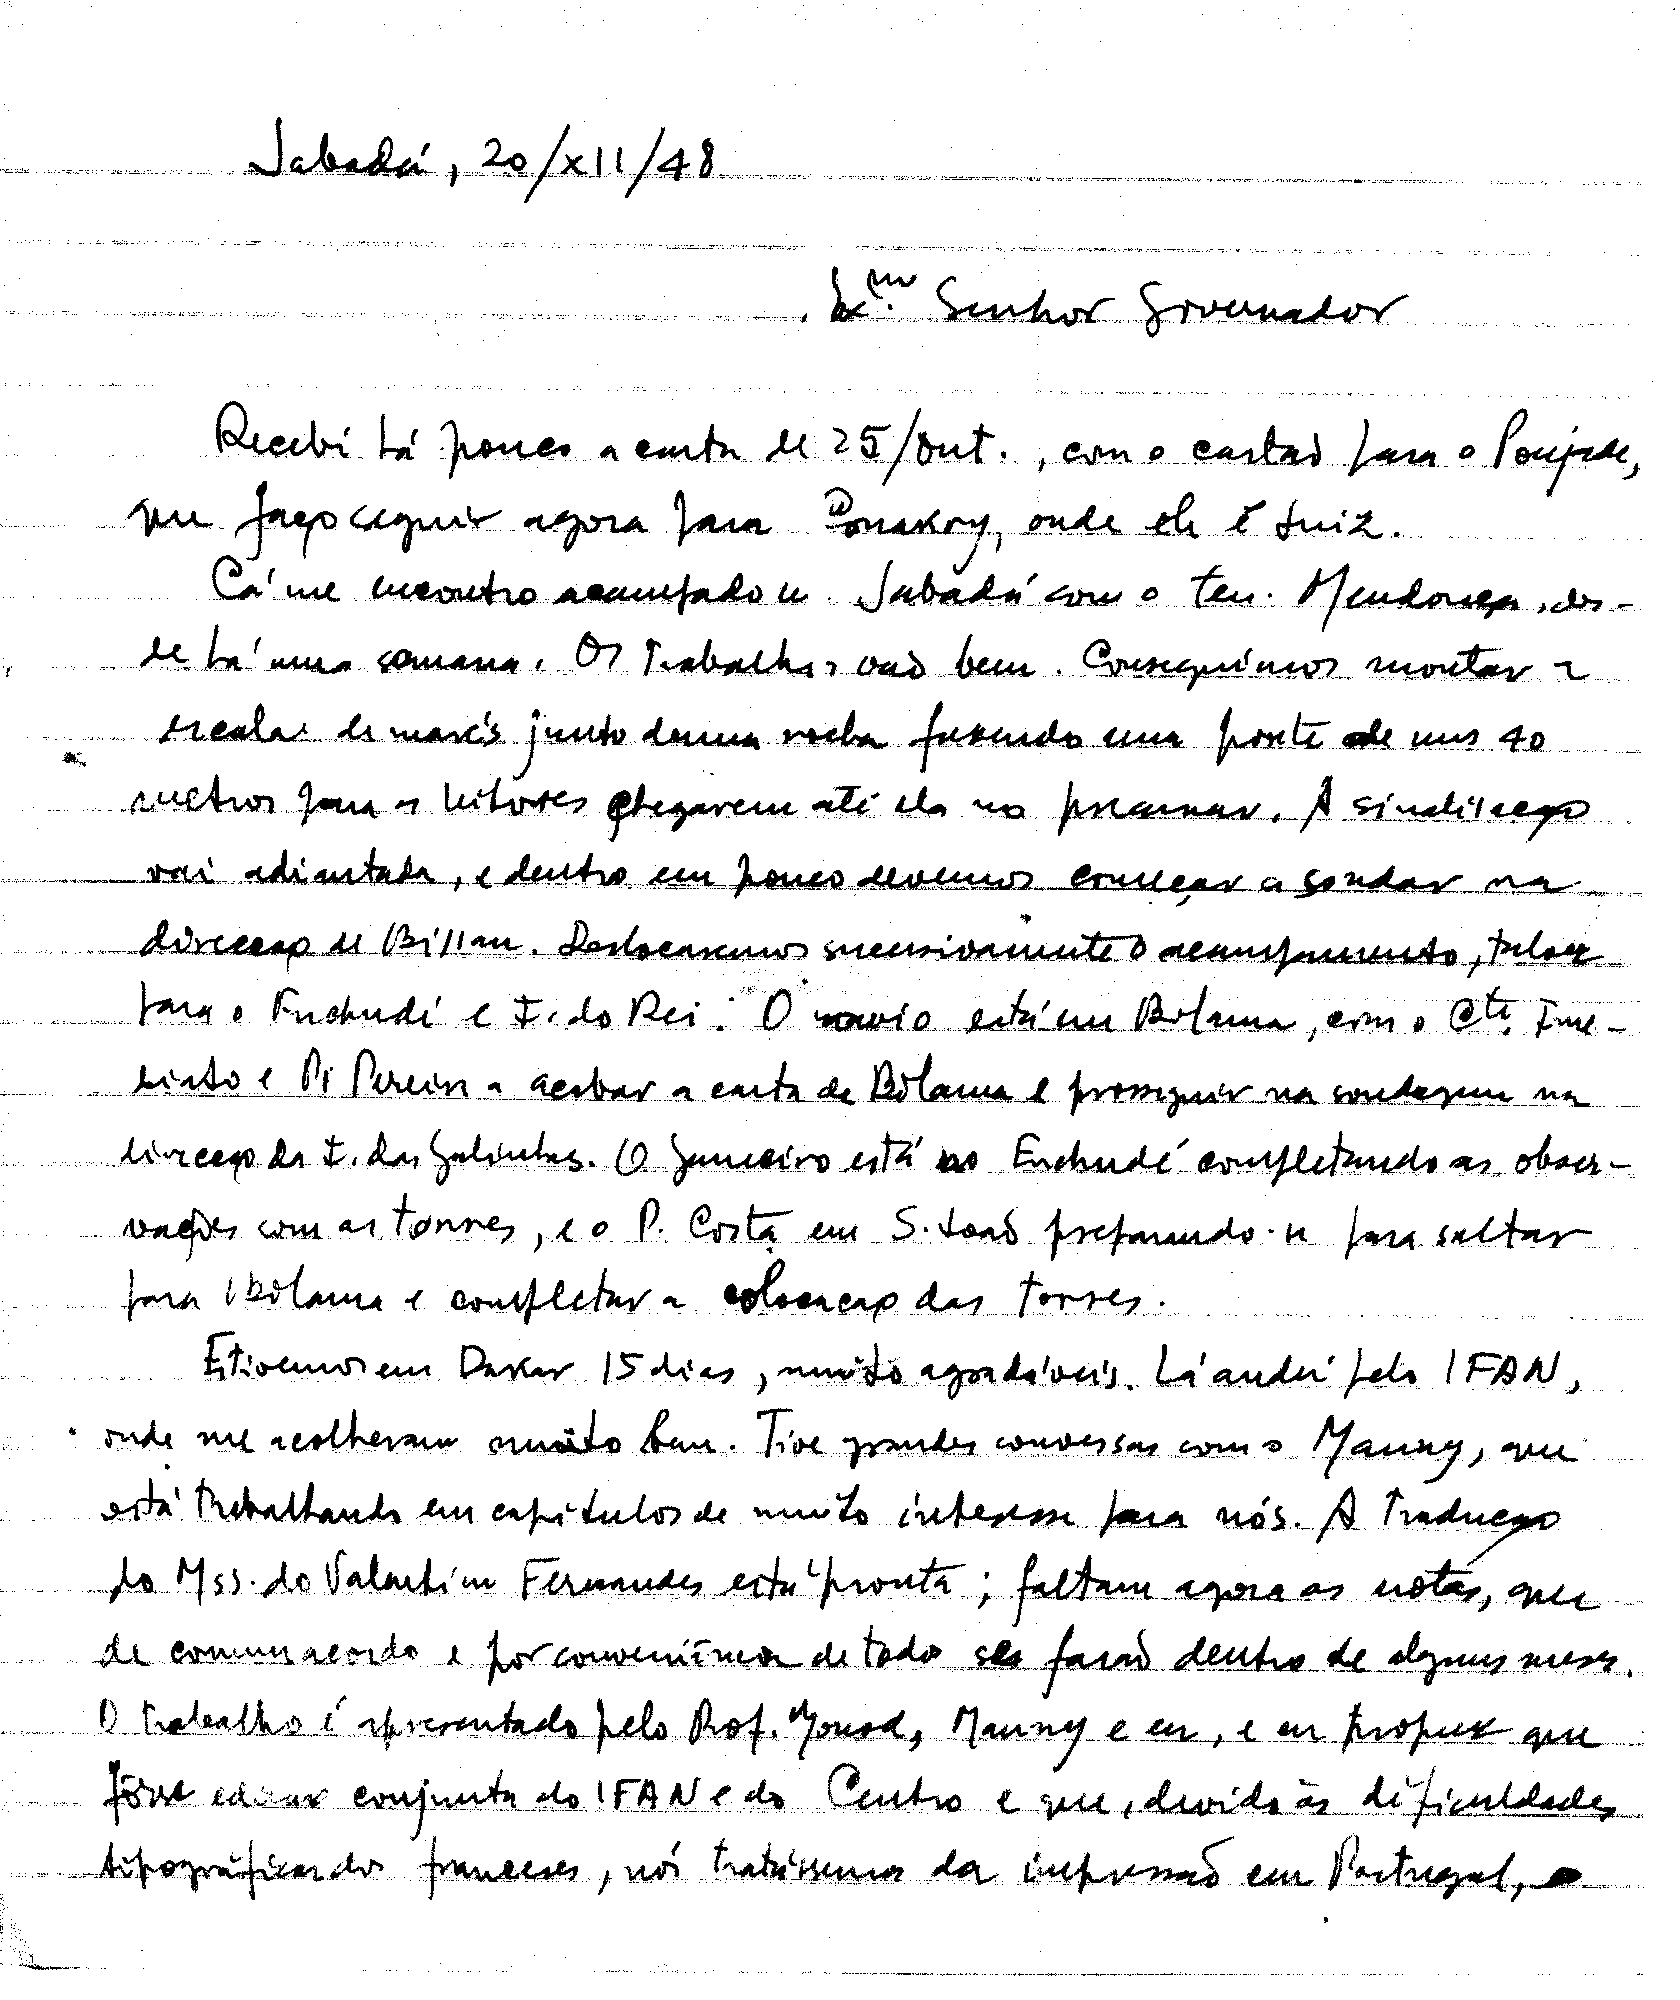 Jabadá, 20/XII/48
Exmo. Senhor Governador
Recebi há pouco a carta de 25/Out., com o cartão para o Poujade,
que faço seguir agora para Conakry, onde ele é Juiz.
Cá me encontro acampado em Jabadá com o ten. Mendonça, des-
de há uma semana. Os trabalhos vão bem. Conseguimos montar a
escala de marés junto duma rocha fazendo uma ponte de uns 40
metros para os leitores chegarem até ela no preamar. A sinalização
vai adiantada, e dentro em pouco devemos começar a sondar na
direcção de Bissau. Deslocaremos sucessivamente o acampamento, talvez
para o Enchudé e I. do Rei. O navio está em Bolama, com o Cte. Ime-
diato e Pi Pereira a acabar a carta de Bolama e prosseguir na sondagem na
direcção da I. das Galinhas. O Januário está no Enchudé completando as obser-
vações com as torres, e o P. Costa em S. João preparando-se para saltar
para Bolama e completar a colocação das torres.
Estivemos em Dakar 15 dias, muito agradáveis. Lá andei pelo IFAN,
onde me acolheram muito bem. Tive grandes conversas com o Mauny, que
está trabalhando em capítulos de muito interesse para nós. A tradução
do Mss. do Valentim Fernandes está pronta; faltam agora as notas, que
de comum acordo e por conveniência de todo se farão dentro de alguns meses.
O trabalho é apresentado pelo Prof. Monod, Mauny e eu, e eu propus que
fosse edição conjunta do IFAN e do Centro e que, devido às dificuldades
tipográficas dos franceses, nós tratássemos da impressão em Portugal,